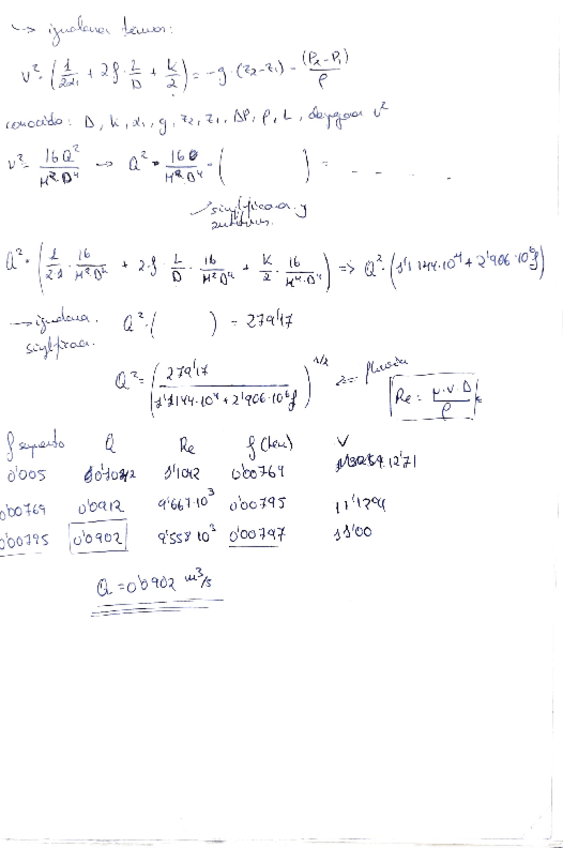 → igualamos términos:
v² · (1/2α₁ + 2f · L/D + k/2) = -g · (z₂-z₁) - (P₂-P₁)/ρ
conocido: D, k, α₁, g, z₂, z₁, ΔP, ρ, L, v²
v² = 16Q²/π²D⁴ → Q² · 16/π²D⁴ · ( ) = - - - -
simplificar y
Q² · (1/2·1 · 16/π²D⁴ + 2·f · L/D · 16/π²D⁴ + k/2 · 16/π²·D⁴) => Q² · (1'1144·10⁴ + 2'906·10⁶f)
→ igualamos. Q² · ( ) = 279'17
Q² = (279'17/(1'1144·10⁴ + 2'906·10⁶f))^1/2
Re = μ·v·D/ρ
f supuesto Q Re f (tew) V
0'005 0'1042 1'1042 0'00769 12'71
0'00769 0'0912 9'667·10³ 0'00795 11'1294
0'00795 0'0902 9'558·10³ 0'00797 11'00
Q = 0'0902 m³/s